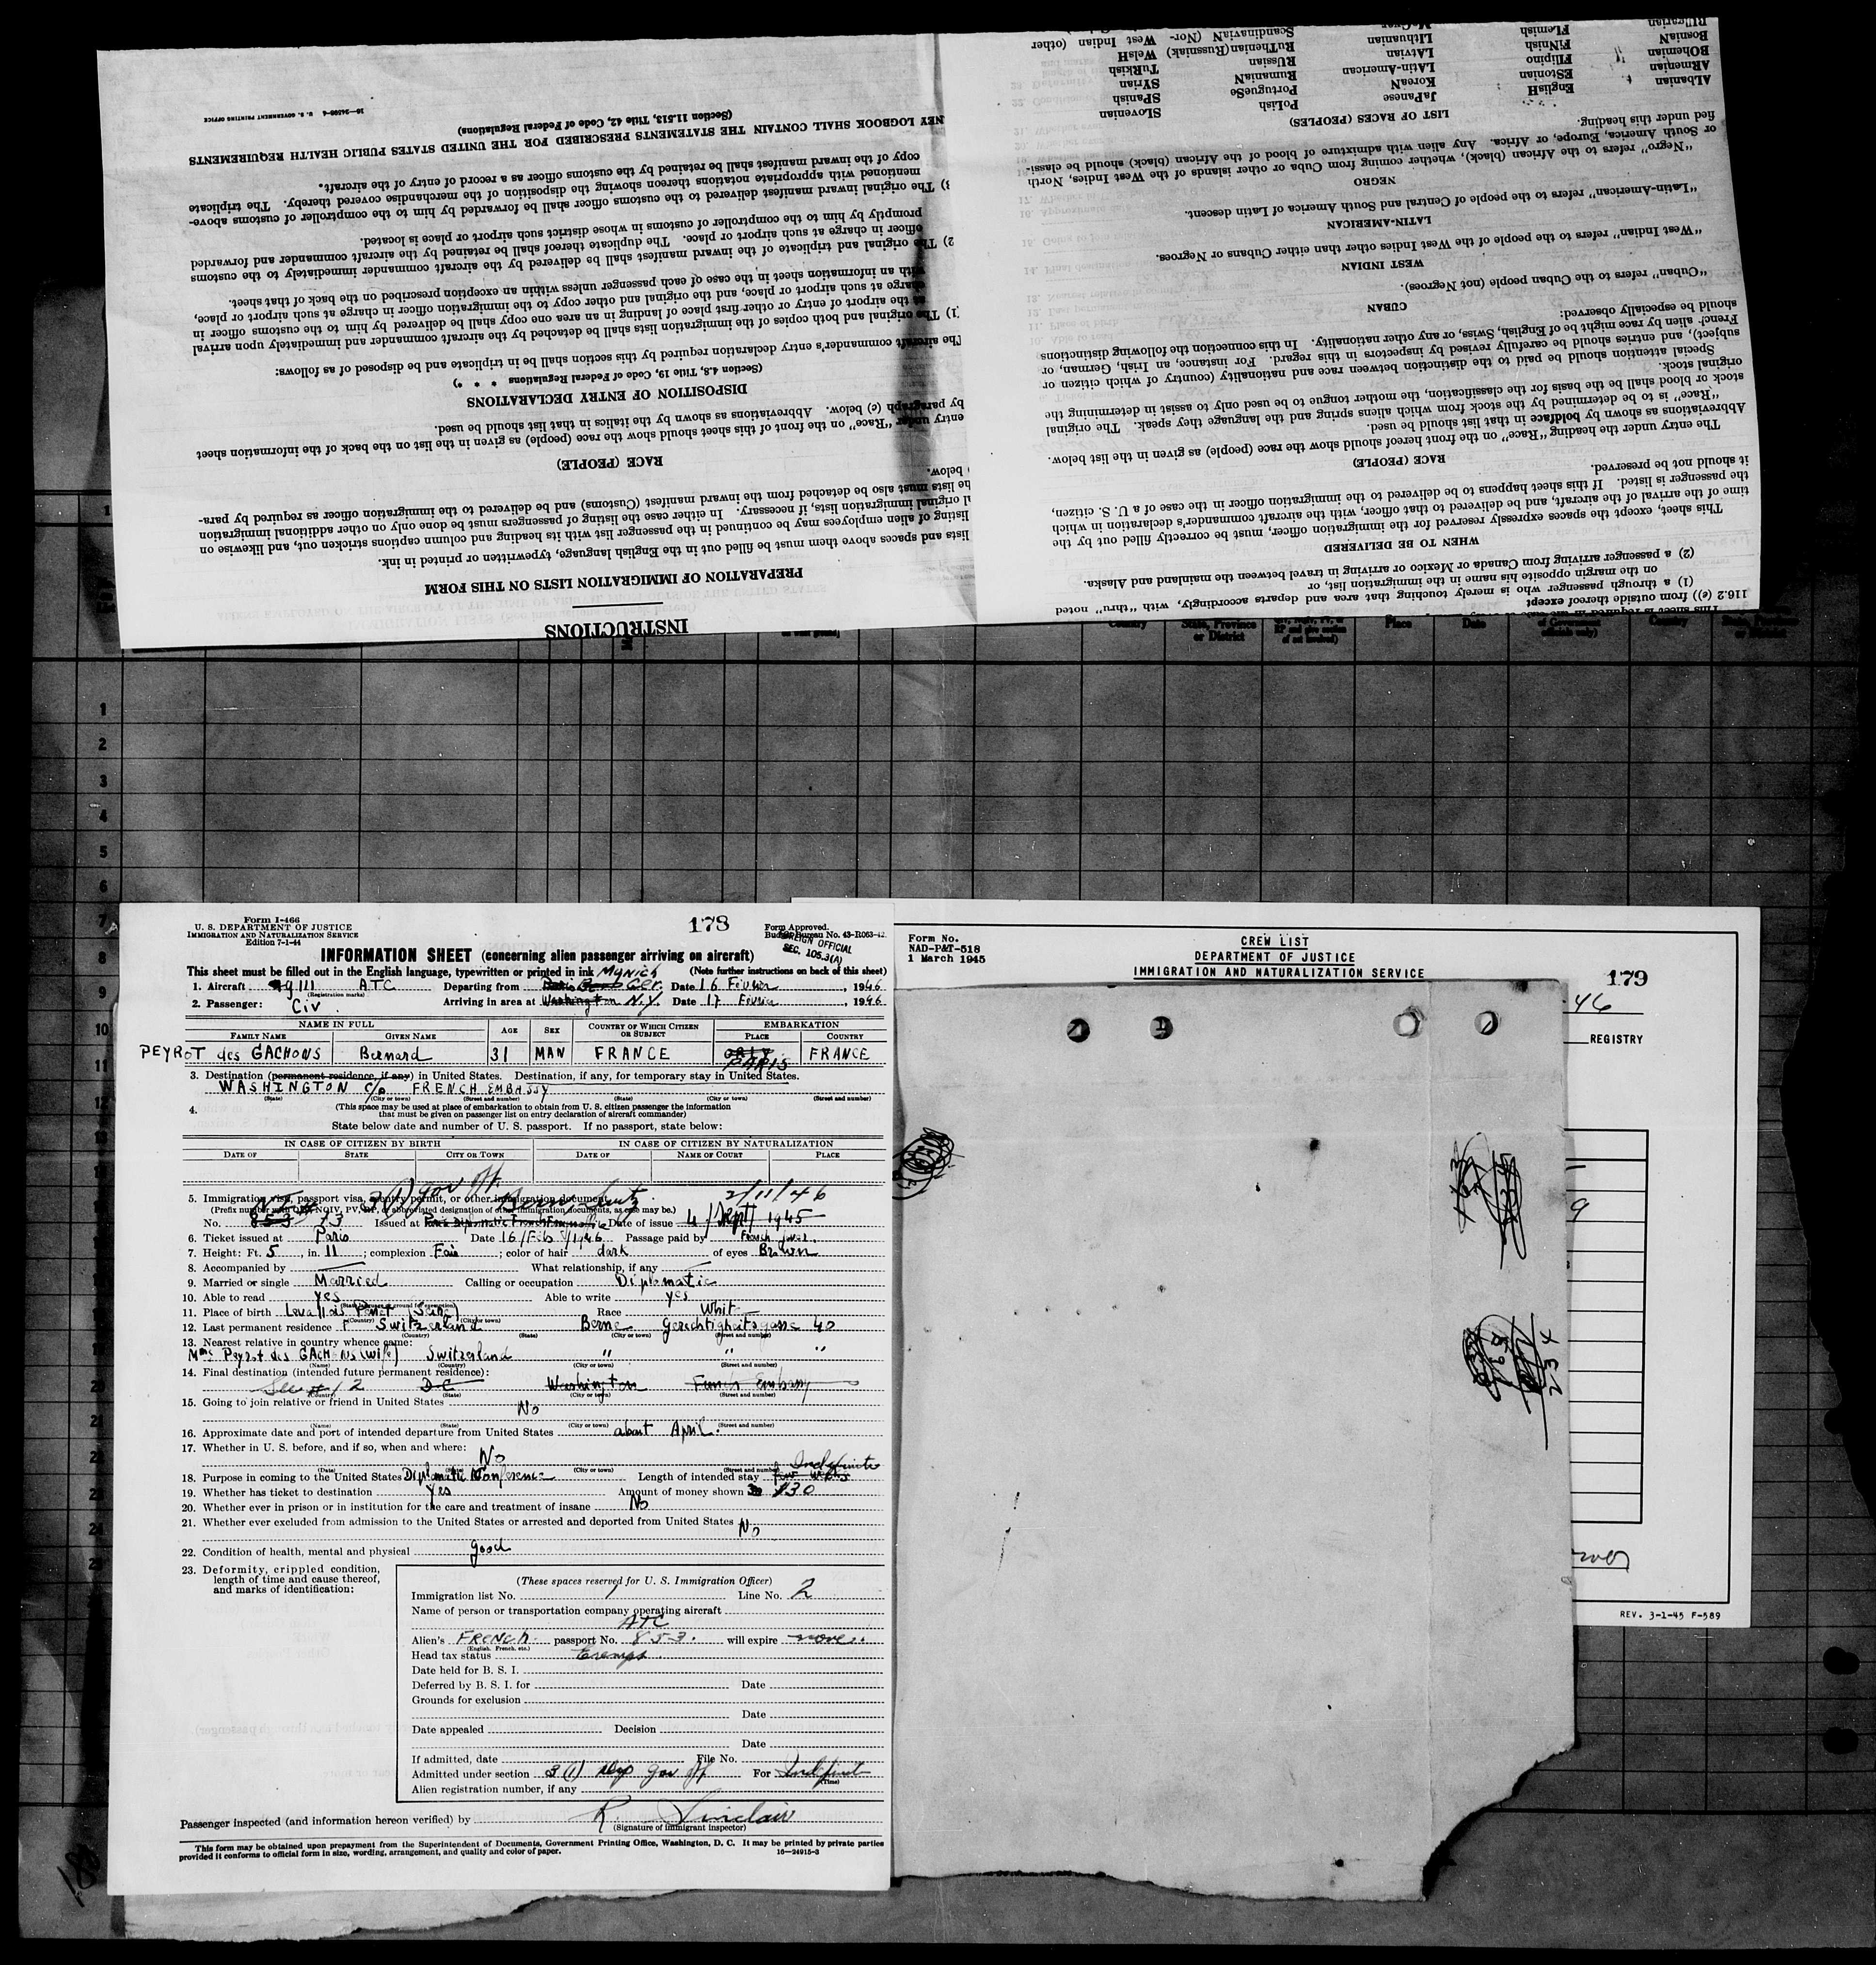 INSTRUCTIONS
PREPARATION OF IMMIGRATION LISTS ON THIS FORM
lists and spaces above them must be filled out in the English language, typewritten or printed in ink.
listing of alien employees may be continued in the passenger list with its heading and column captions stricken out, and likewise on
original immigration lists, if necessary. In either case the listing of passengers must be done only on other additional immigration
he lists must also be detached from the inward manifest (Customs) and be delivered to the immigration officer as required by para-
below.
RACE (PEOPLE)
entry under "Race" on the front of this sheet should show the race (people) as given in the list on the back of the information sheet
by paragraph (c) below. Abbreviations as shown by the italics in that list should be used.
DISPOSITION OF ENTRY DECLARATIONS
(Section 4.8, Title 19, Code of Federal Regulations * * *)
The aircraft commander's entry declaration required by this section shall be in triplicate and be disposed of as follows:
1) The original and both copies of the immigration lists shall be detached by the aircraft commander and immediately upon arrival
at the airport of entry or other first place of landing in an area one copy shall be delivered by him to the customs officer in
charge at such airport or place, and the original and other copy to the immigration officer in charge at such airport or place,
with an information sheet in the case of each passenger unless within an exception prescribed on the back of that sheet.
2) The original and triplicate of the inward manifest shall be delivered by the aircraft commander immediately to the customs
officer in charge at such airport or place. The duplicate thereof shall be retained by the aircraft commander and forwarded
promptly by him to the comptroller of customs in whose district such airport or place is located.
3) The original inward manifest delivered to the customs officer shall be forwarded by him to the comptroller of customs above-
mentioned with appropriate notations thereon showing the disposition of the merchandise covered thereby. The triplicate
copy of the inward manifest shall be retained by the customs officer as a record of entry of the aircraft.
NEY LOGBOOK SHALL CONTAIN THE STATEMENTS PRESCRIBED FOR THE UNITED STATES PUBLIC HEALTH REQUIREMENTS
(Section 11.513, Title 42, Code of Federal Regulations)
U. S. GOVERNMENT PRINTING OFFICE
116.2 (e)) from outside thereof except
(1) a through passenger who is merely touching that area and departs accordingly, with "thru" noted
on the margin opposite his name in the immigration list, or
(2) a passenger arriving from Canada or Mexico or arriving in travel between the mainland and Alaska.
WHEN TO BE DELIVERED
This sheet, except the spaces expressly reserved for the immigration officer, must be correctly filled out by the
time of the arrival of the aircraft, and be delivered to that officer, with the aircraft commander's declaration in which
the passenger is listed. If this sheet happens to be delivered to the immigration officer in the case of a U. S. citizen,
it should not be preserved.
RACE (PEOPLE)
The entry under the heading "Race" on the front hereof should show the race (people) as given in the list below.
Abbreviations as shown by boldface in that list should be used.
"Race" is to be determined by the stock from which aliens spring and the language they speak. The original
stock or blood shall be the basis for the classification, the mother tongue to be used only to assist in determining the
original stock.
Special attention should be paid to the distinction between race and nationality (country of which citizen or
subject), and entries should be carefully revised by inspectors in this regard. For instance, an Irish, German, or
French alien by race might be of English, Swiss, or any other nationality. In this connection the following distinctions
should be especially observed:
CUBAN
"Cuban" refers to the Cuban people (not Negroes).
WEST INDIAN
"West Indian" refers to the people of the West Indies other than either Cubans or Negroes.
LATIN-AMERICAN
"Latin-American" refers to the people of Central and South America of Latin descent.
NEGRO
"Negro" refers to the African (black), whether coming from Cuba or other islands of the West Indies, North
or South America, Europe, or Africa. Any alien with admixture of blood of the African (black) should be classi-
fied under this heading.
LIST OF RACES (PEOPLES)
AlbaniaN EnglisH JaPanesе PoLisH SlovenIan
ARmenian EStonian KoreaN PortugueSe SPanish
BOhemian FIlipino LAtin-American RumaniaN SYrian
BosniaN FiNnish LAtvian RUssian TuRkish
BUlgarian FLemish LIthuanian RuThenian (Russniak) WelsH
ScandinaviaN (Nor- West Indian (other
Country State, Province or District Place Date Country
1
2
3
4
5
6
7
8
9
10
11
Form I-466
U. S. DEPARTMENT OF JUSTICE
IMMIGRATION AND NATURALIZATION SERVICE
Edition 7-1-44
178
Form Approved.
Budget Bureau No. 43-R063-42.
FOREIGN OFFICIAL
SEC. 105.3(A)
INFORMATION SHEET (concerning alien passenger arriving on aircraft)
This sheet must be filled out in the English language, typewritten or printed in ink (Note further instructions on back of this sheet)
1. Aircraft 9111 ATC Departing from Munich Ger. Date 16 Février, 1946
(Registration marks)
2. Passenger: Civ. Arriving in area at Washington N.Y. Date 17 Février, 1946
NAME IN FULL AGE SEX COUNTRY OF WHICH CITIZEN OR SUBJECT EMBARKATION
FAMILY NAME GIVEN NAME PLACE COUNTRY
PEYROT des GACHONS Bernard 31 MAN FRANCE ORLY PARIS FRANCE
3. Destination (permanent residence, if any) in United States. Destination, if any, for temporary stay in United States.
WASHINGTON c/o FRENCH EMBASSY
(State) (City or town) (Street and number) (State) (City or town) (Street and number)
4. (This space may be used at place of embarkation to obtain from U. S. citizen passenger the information
that must be given on passenger list on entry declaration of aircraft commander)
State below date and number of U. S. passport. If no passport, state below:
IN CASE OF CITIZEN BY BIRTH IN CASE OF CITIZEN BY NATURALIZATION
DATE OF STATE CITY OR TOWN DATE OF NAME OF COURT PLACE
5. Immigration visa, passport visa, reentry permit, or other immigration document 2/11/46
(Prefix number with QIV, NQIV, PV, RP, or abbreviated designation of other immigration documents, as case may be.)
No. 853 Issued at Date of issue 4/Sept/1945
6. Ticket issued at Paris Date 16/Feb/1946 Passage paid by French govt.
7. Height: Ft. 5, in. 11; complexion Fair; color of hair dark of eyes Brown
8. Accompanied by What relationship, if any
9. Married or single Married Calling or occupation Diplomatic
10. Able to read yes Able to write yes
11. Place of birth Levallois Perret (Seine) Race Whit
12. Last permanent residence Switzerland Berne Gerechtigkeitsgasse 40
(Country) (State) (City or town) (Street and number)
13. Nearest relative in country whence came:
Mme Peyrot des GACHONS (wife) Switzerland " " "
(Name) (Country) (City or town) (Street and number)
14. Final destination (intended future permanent residence):
See # 12 D C Washington French Embassy
(Country) (State) (City or town) (Street and number)
15. Going to join relative or friend in United States No
(Name) (State) (City or town) (Street and number)
16. Approximate date and port of intended departure from United States about April.
17. Whether in U. S. before, and if so, when and where: No
(Date) (City or town) (Street and number)
18. Purpose in coming to the United States Diplomatic Conference Length of intended stay few weeks Indefinite
19. Whether has ticket to destination Yes Amount of money shown $30
20. Whether ever in prison or in institution for the care and treatment of insane No
21. Whether ever excluded from admission to the United States or arrested and deported from United States No
22. Condition of health, mental and physical good
23. Deformity, crippled condition,
length of time and cause thereof,
and marks of identification:
(These spaces reserved for U. S. Immigration Officer)
Immigration list No. 1 Line No. 2
Name of person or transportation company operating aircraft
ATC
Alien's FRENCH passport No. 853. will expire none.
(English, French, etc.)
Head tax status Exempt.
Date held for B. S. I.
Deferred by B. S. I. for Date
Grounds for exclusion
Date
Date appealed Decision
Date
If admitted, date File No.
Admitted under section 3(1) Dip gov off For Indefinite
(Time)
Alien registration number, if any
Passenger inspected (and information hereon verified) by R. Sinclair
(Signature of immigrant inspector)
This form may be obtained upon prepayment from the Superintendent of Documents, Government Printing Office, Washington, D. C. It may be printed by private parties
provided it conforms to official form in size, wording, arrangement, and quality and color of paper. 16—24915-3
Form No.
NAD-P&T-518
1 March 1945
CREW LIST
DEPARTMENT OF JUSTICE
IMMIGRATION AND NATURALIZATION SERVICE
179
46
REGISTRY
9
REV. 3-1-45 F-589